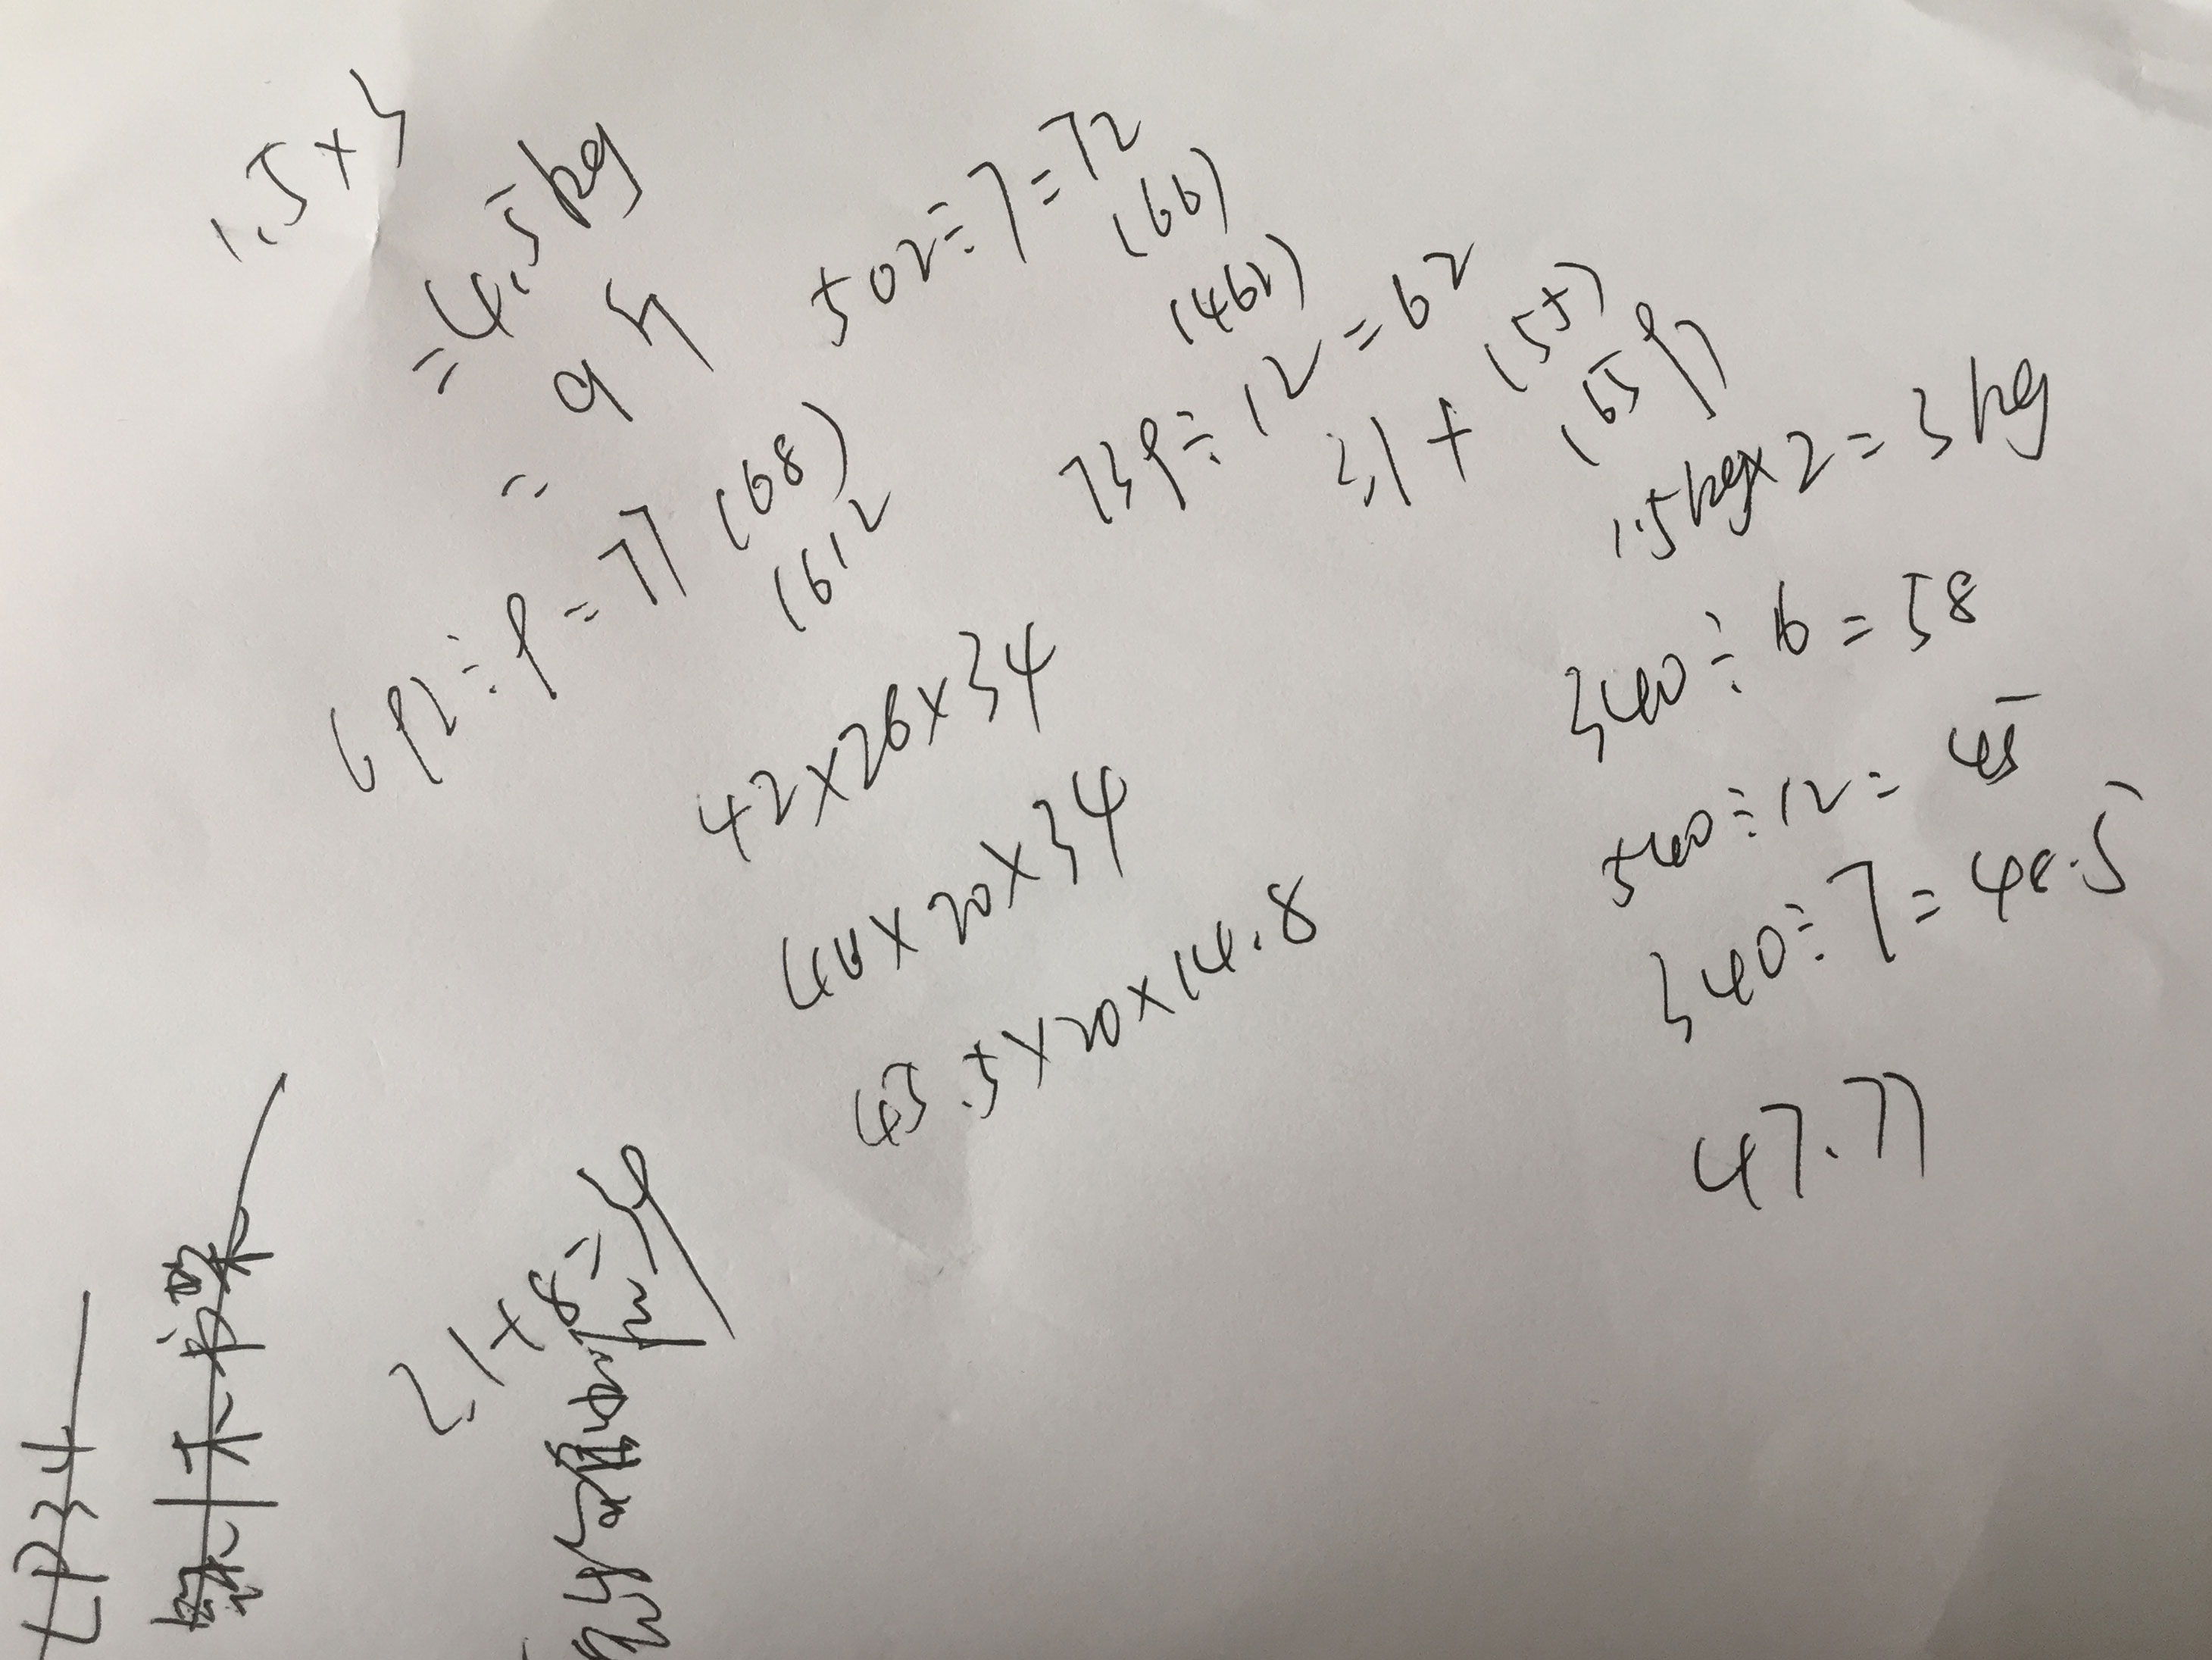 1.5×3
=4.5kg
=9斤
692÷9=77(68)
(612
502÷7=72
(66)
(462)
739÷12=62
31+(55)
(659)
1.5kg×2=3kg
340÷6=58
540÷12=45
340÷7=48.5
47.77
42×26×34
44×20×34
43.5×20×14.8
21+8=29
LP34